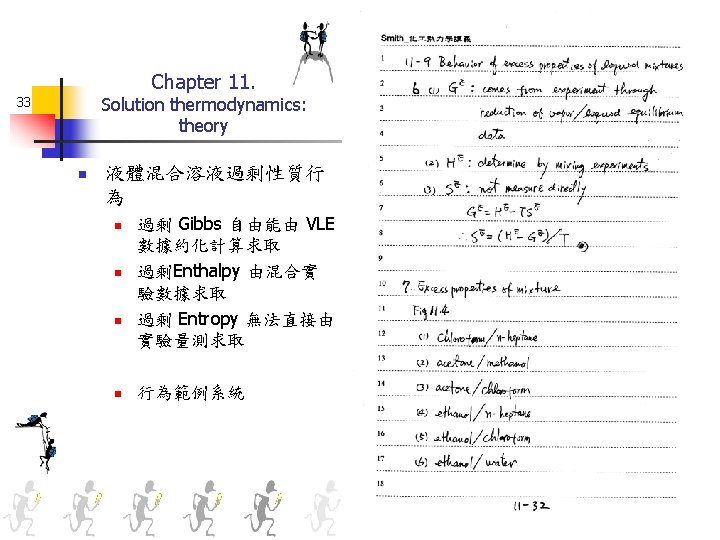 Chapter 11.
33
Solution thermodynamics:
theory
液體混合溶液過剩性質行
為
過剩 Gibbs 自由能由 VLE
數據約化計算求取
過剩Enthalpy 由混合實
驗數據求取
過剩 Entropy 無法直接由
實驗量測求取
行為範例系統
Smith 化工熱力學講義
1 11-9 Behavior of excess properties of liquid mixtures
2 6 (1) G^E : comes from experiment through
3 reduction of vapor/liquid equilibrium
4 data
5 (2) H^E : determine by mixing experiments
6 (3) S^E : not measure directly
7 G^E = H^E - TS^E
8 ∴ S^E = (H^E - G^E)/T
9
10 7. Excess properties of mixture
11 Fig 11.4
12 (1) Chloroform/n-heptane
13 (2) acetone/methanol
14 (3) acetone/chloroform
15 (4) ethanol/n-heptane
16 (5) ethanol/chloroform
17 (6) ethanol/water
18
11-32